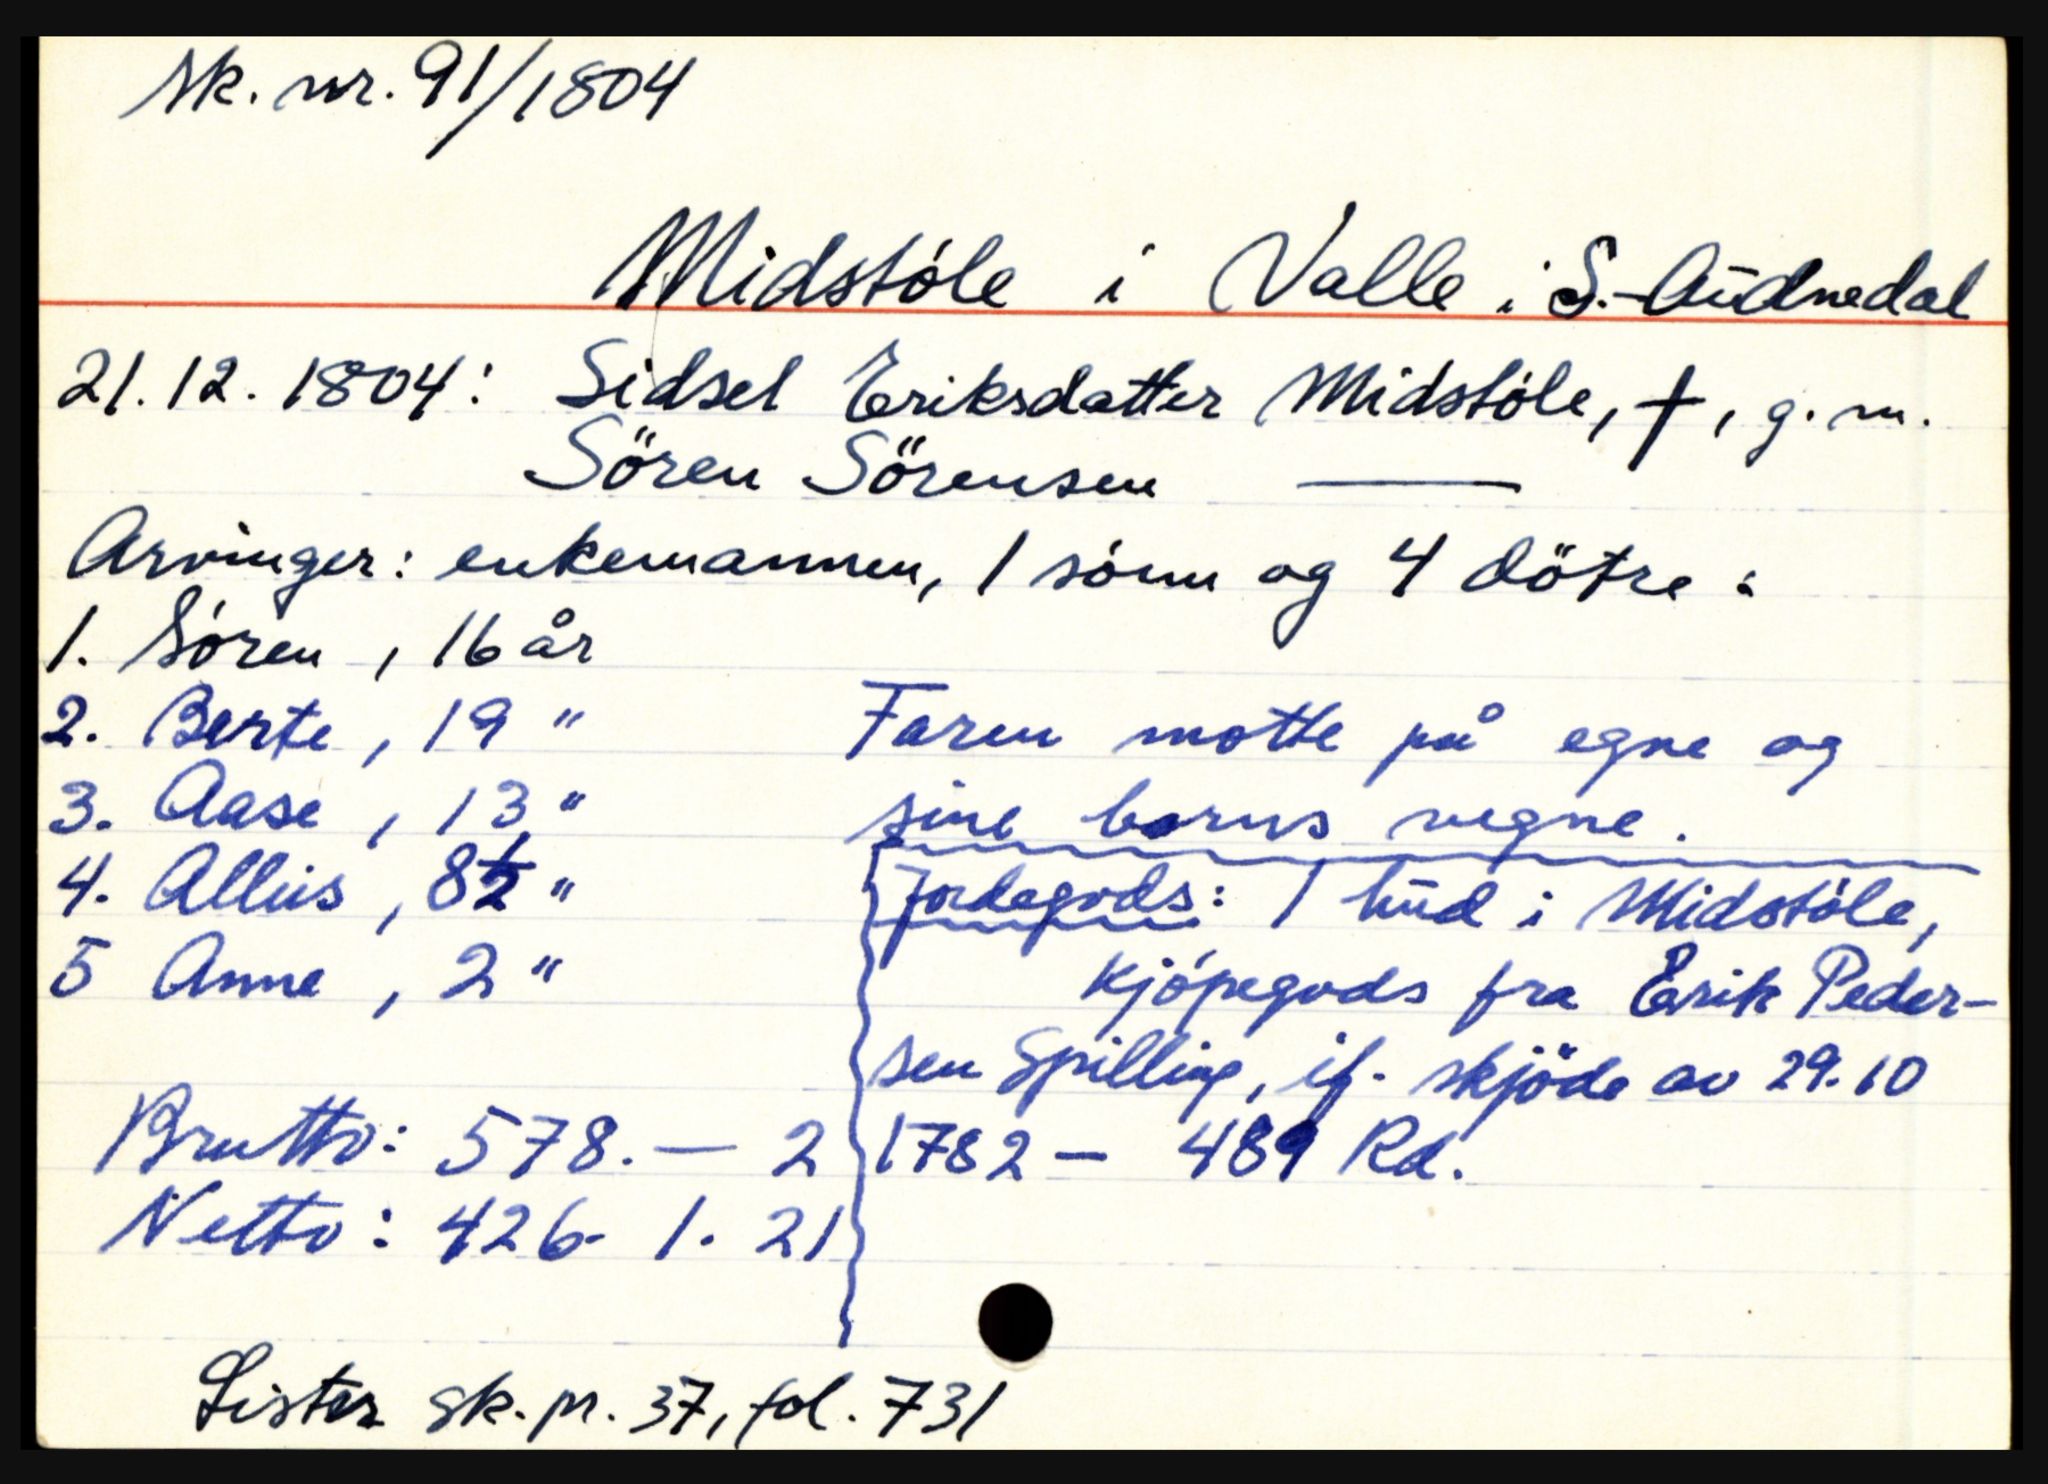 Sk. nr. 91/1804
Midstöle i Valle i S.-Audnedal
21.12.1804: Sidsel Eriksdatter Midstöle, †, g.m.
Sören Sörensen ——
Arvinger: enkemannen, 1 sönn og 4 dötre:
1. Sören, 16 år
2. Berte, 19 "
3. Aase, 13 "
4. Allis, 8½ "
5 Anne, 2 "
Brutto: 578. — 2
Netto: 426. 1. 21
Faren møtte på egne og
sine barns vegne.
Jordegods: 1 hud i Midstöle,
Kjöpegods fra Erik Peder-
sen Spilling, if. skjöde av 29.10
1782 — 489 Rd.
Lister sk. pr. 37, fol. 731